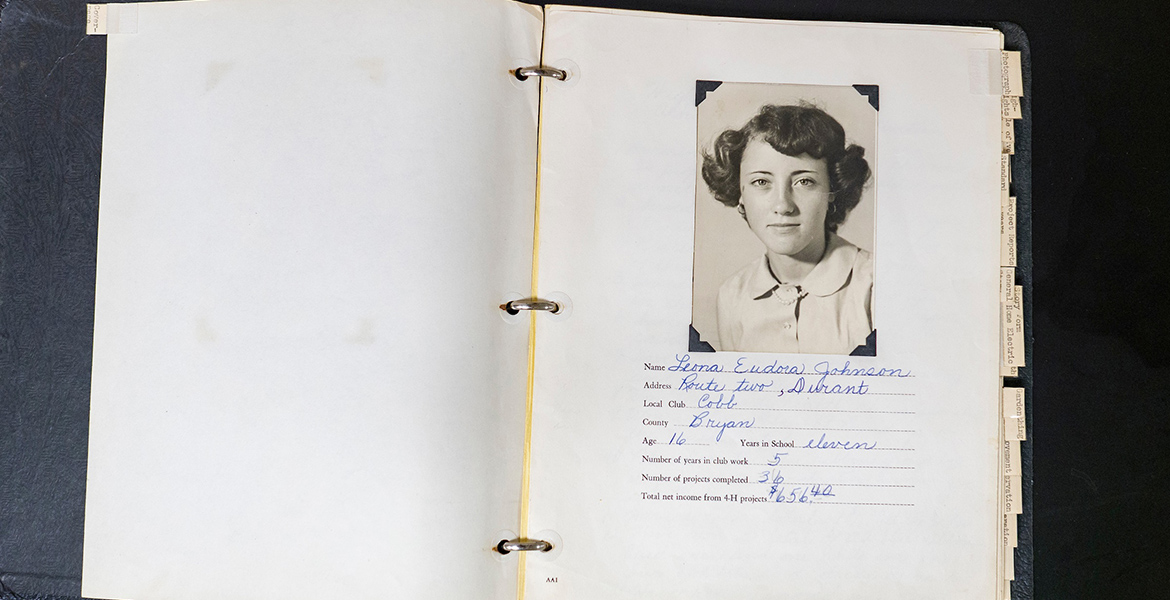 Name Leona Eudora Johnson
Address Route two, Durant
Local Club Cobb
County Bryan
Age 16 Years in School eleven
Number of years in club work 5
Number of projects completed 36
Total net income from 4-H projects $656.40
AA1
Photograph
Standard
Project Reports
Story Form
General Home Electric